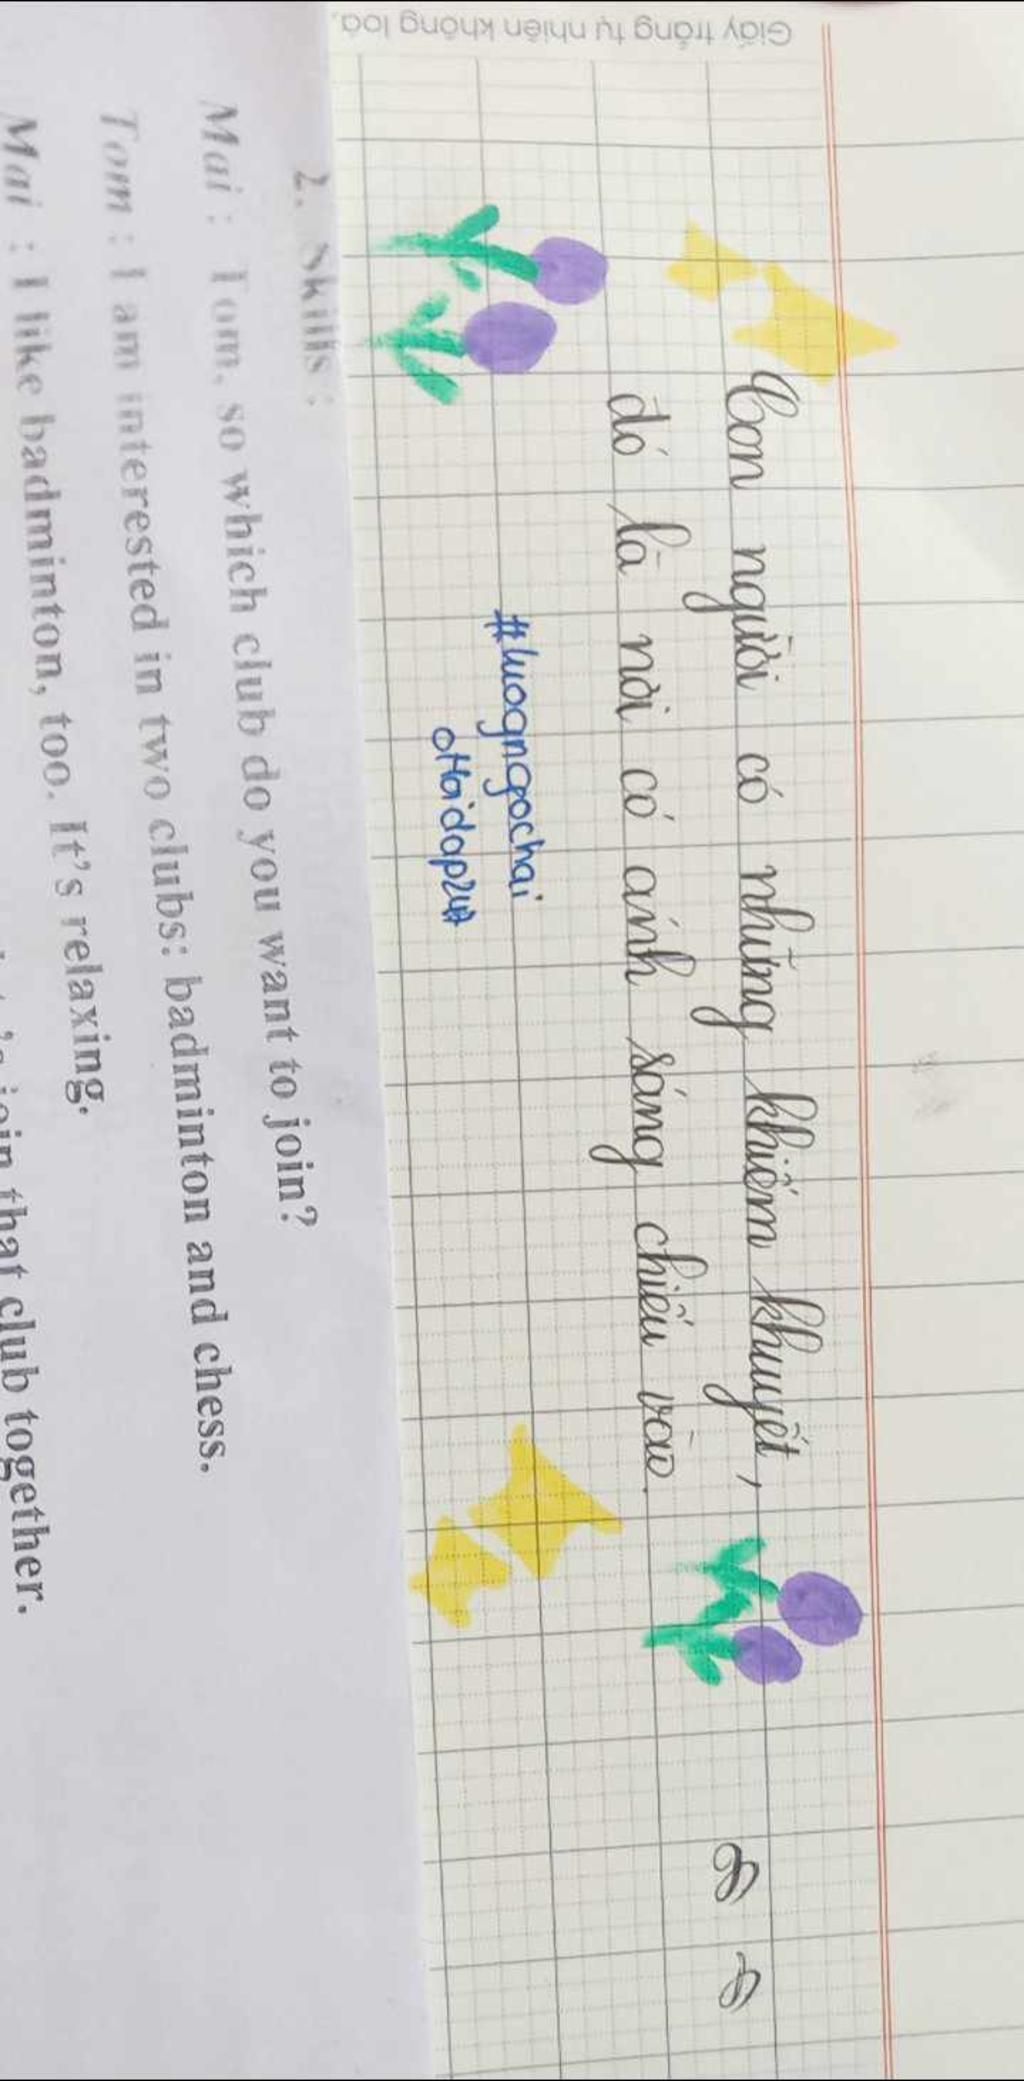 Giấy trắng tự nhiên không loá.
Con người có những khiếm khuyết,
đó là nơi có ánh sáng chiếu vào.
#luogngochai
Hoidap247
2. Skills :
Mai : Tom, so which club do you want to join?
Tom : I am interested in two clubs: badminton and chess.
Mai : I like badminton, too. It's relaxing.
join that club together.